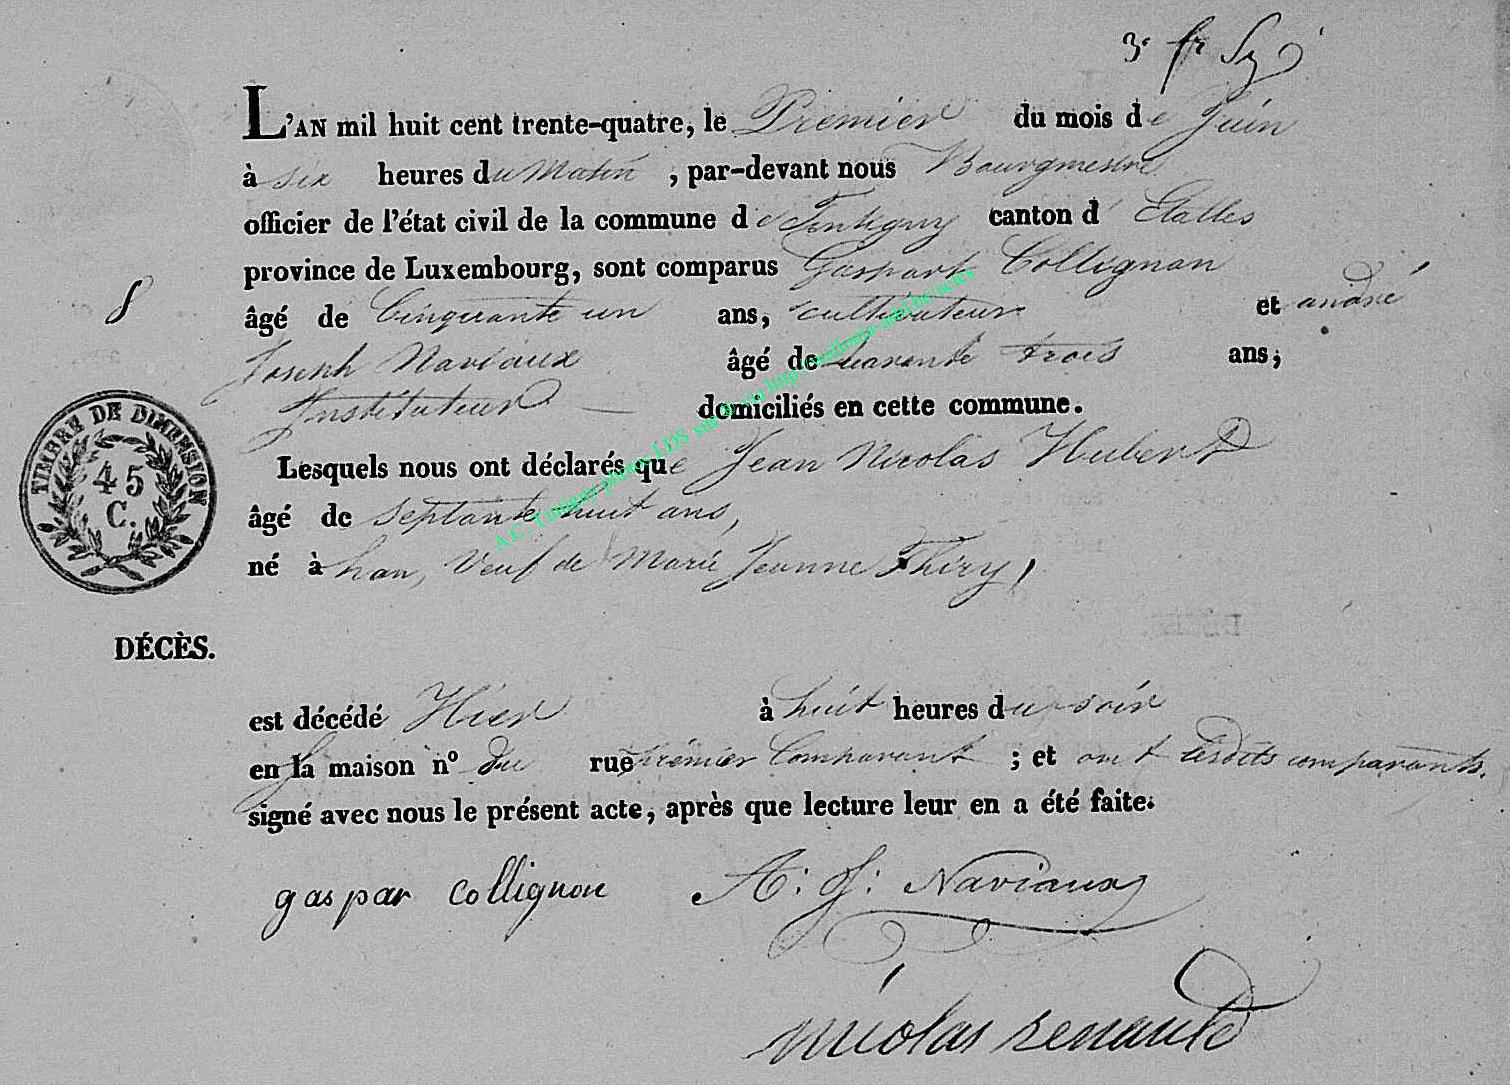 3 fr
L'AN mil huit cent trente-quatre, le Premier du mois de Juin
à six heures du Matin, par-devant nous Bourgmestre
officier de l'état civil de la commune de Tintigny canton d'Etalles
province de Luxembourg, sont comparus Gaspart Collignon
8
âgé de Cinquante un ans, cultivateur et andré
Joseph Naviaux âgé de quarante trois ans,
Instituteur — domiciliés en cette commune.
TIMBRE DE DIMENSION
45
C.
Lesquels nous ont déclarés que Jean Nicolas Hubert
âgé de septante huit ans,
né à han, Veuf de Marie Jeanne Thiry,
A.C. Tintigny photos LDS site & via http://wallonia-asbl.be/actes
DÉCÈS.
est décédé Hier à huit heures du soir
en la maison nº du rue premier Comparant ; et ont lesdits comparants.
signé avec nous le présent acte, après que lecture leur en a été faite.
gaspar collignon A: J: Naviaux
nicolas renauld